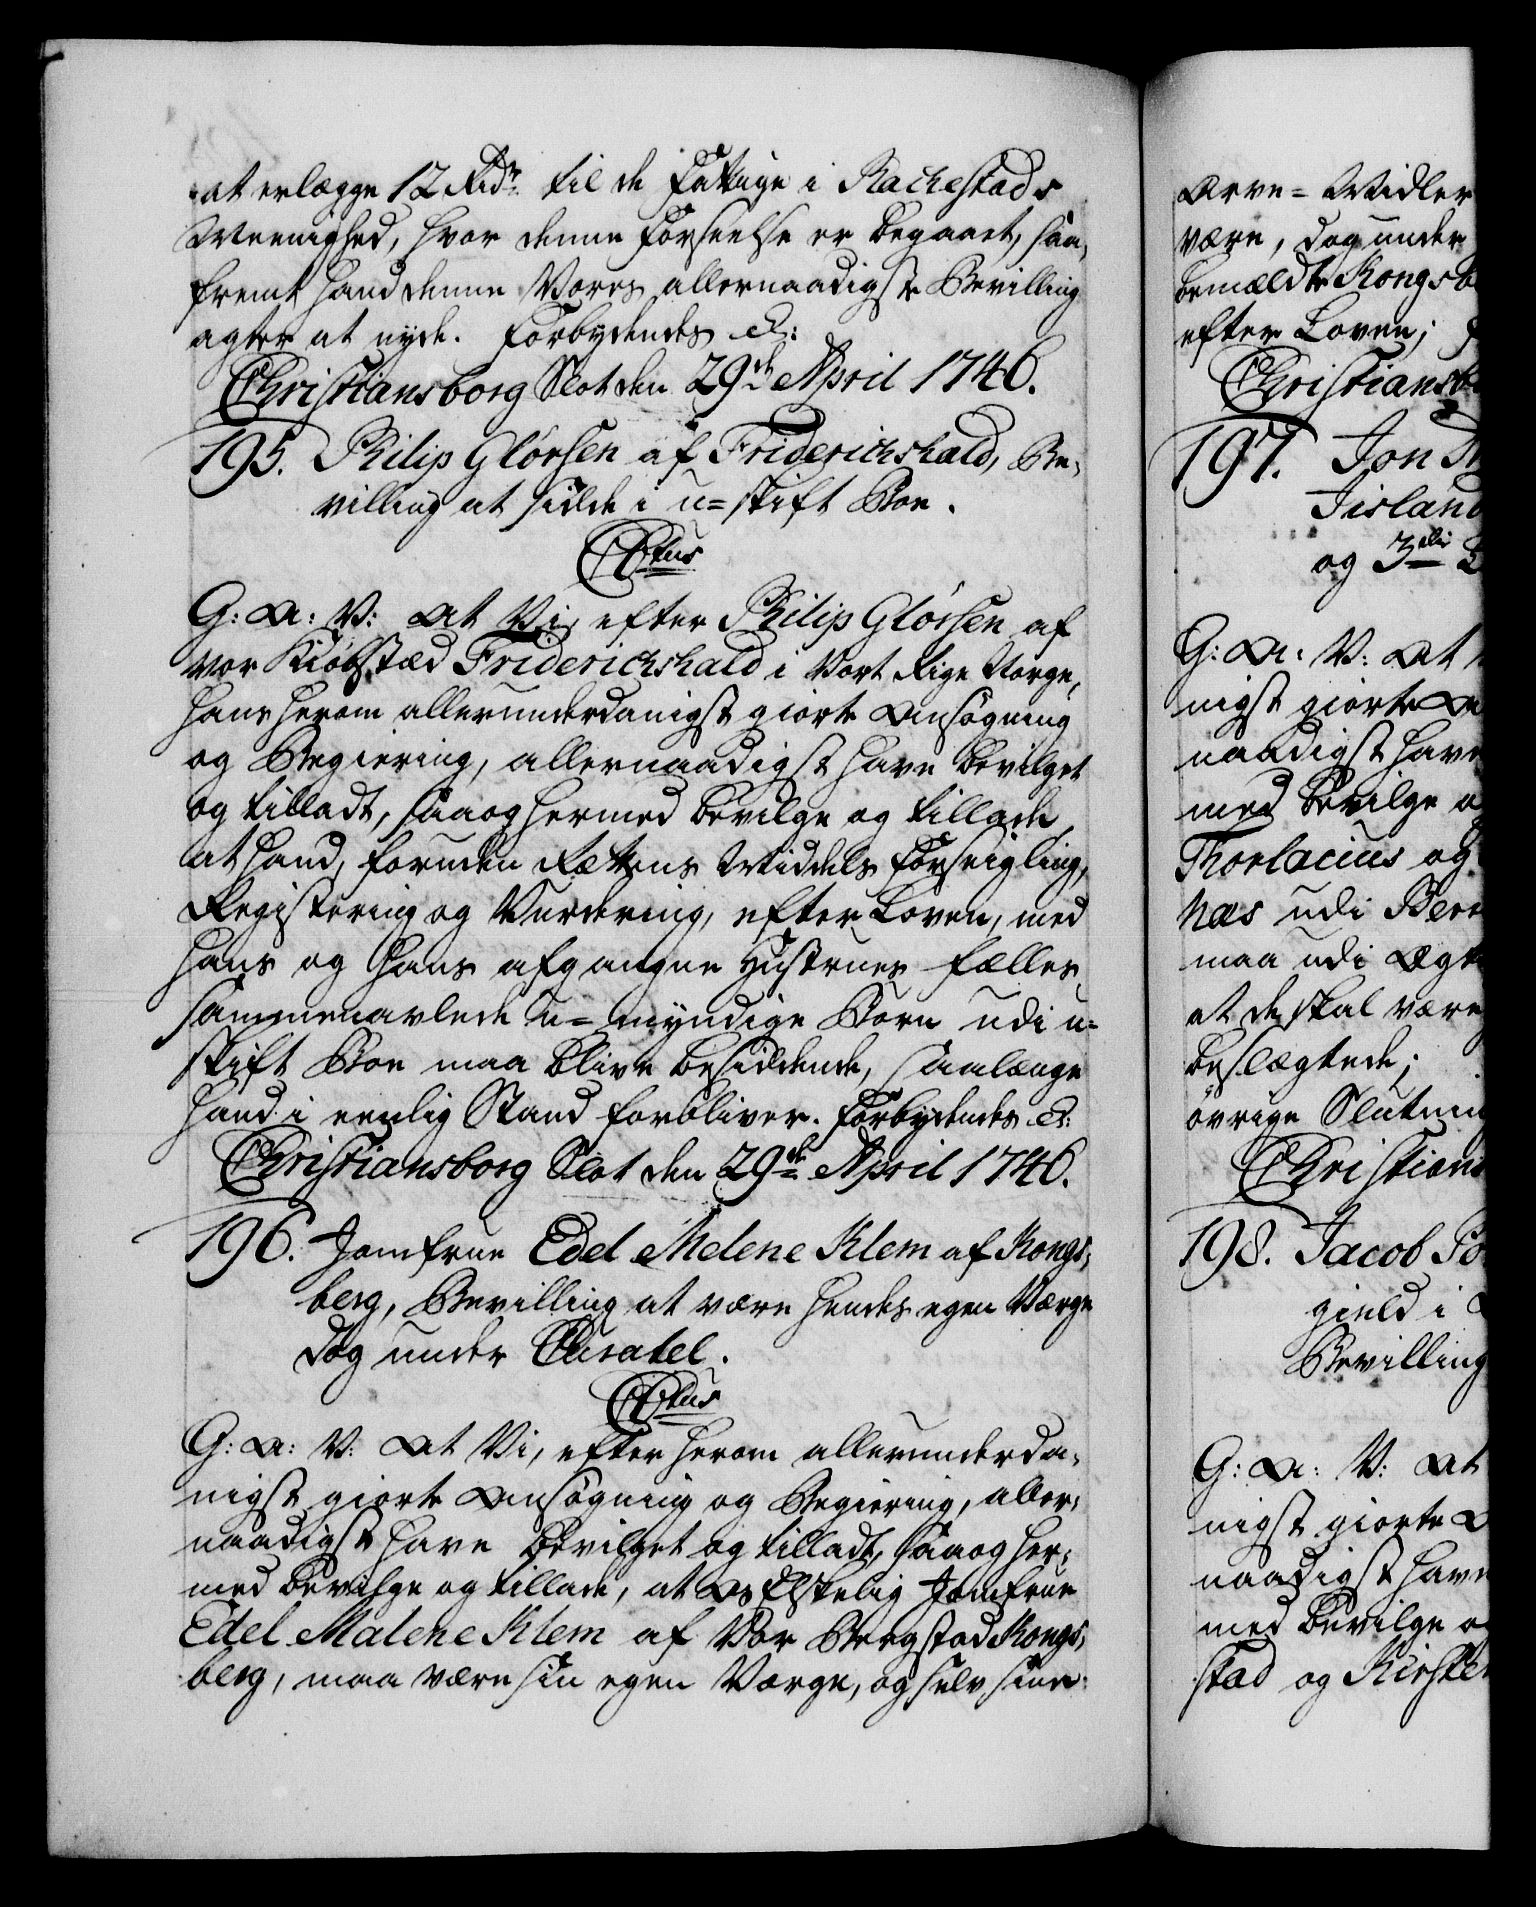 at erlægge 12 Rdr. til de Fattige i Rachestads
Meenighed, hvor denne Forseelse er begaaet, saa,
fremt hand denne Vores allernaadigste Bevilling
agter at nyde. Forbydendes &:
Christiansborg Slot den 29de April 1746.
195. Philip Glörsen af Friderichshald, Be,
villing at sidde i u-skift Boe.
C5tus
G: A: V: At Vi, efter Philip Glörsen af
vor Kiöbstæd Friderichshald i Vort Rige Norge,
hans herom allerunderdanigst giorte Ansögning
og Begiering, allernaadigst have bevilget
og tilladt, saa og hermed bevilge og tillade,
at hand, foruden Rættens Middels Forseigling,
Registering og Vurdering, efter Loven, med
hans og hans afgangne Hustrues fælles
sammenavlede u-myndige Börn udi u-
skift Boe maa blive besiddende, saalænge
hand i eenlig Stand forbliver. Forbydendes &:
Christiansborg Slot den 29de April 1746.
196. Jomfrue Edel Melene Klem af Kongs,
berg, Bevilling at være hendes egen Værge
dog under Curatel.
C5tus
G: A: V: At Vi, efter herom allerunderda,
nigst giorte Ansögning og Begiering, aller,
naadigst have bevilget og tilladt, saa og her,
med bevilge og tillade, at Os Elskelig Jomfrue
Edel Malene Klem af Vor Bergstad Kongs,
berg, maa være sin egen Værge, og selv sine
Arve-Midler
være, dog under
bemældte Kongsb
efter Loven;
Christiansb
197. Jon
Jisland
og 3die
G: A: V: At
nigst giorte An
naadigst have
med bevilge o
Thorlacius og
næs udi Ber
maa udi Ægte
at de skal være
beslægtede;
övrige Slutning
Christians
198. Jacob
gield i
Bevilling
G: A: V: At
nigst giorte
naadigst have
med bevilge o
stad og Kirsten